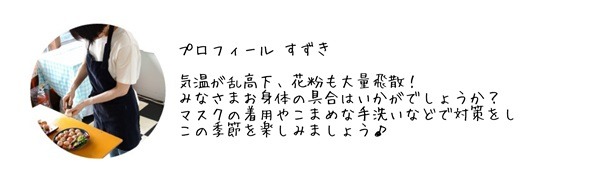 プロフィール すずき
気温が乱高下、花粉も大量飛散！
みなさまお身体の具合はいかがでしょうか？
マスクの着用やこまめな手洗いなどで対策をし
この季節を楽しみましょう♪